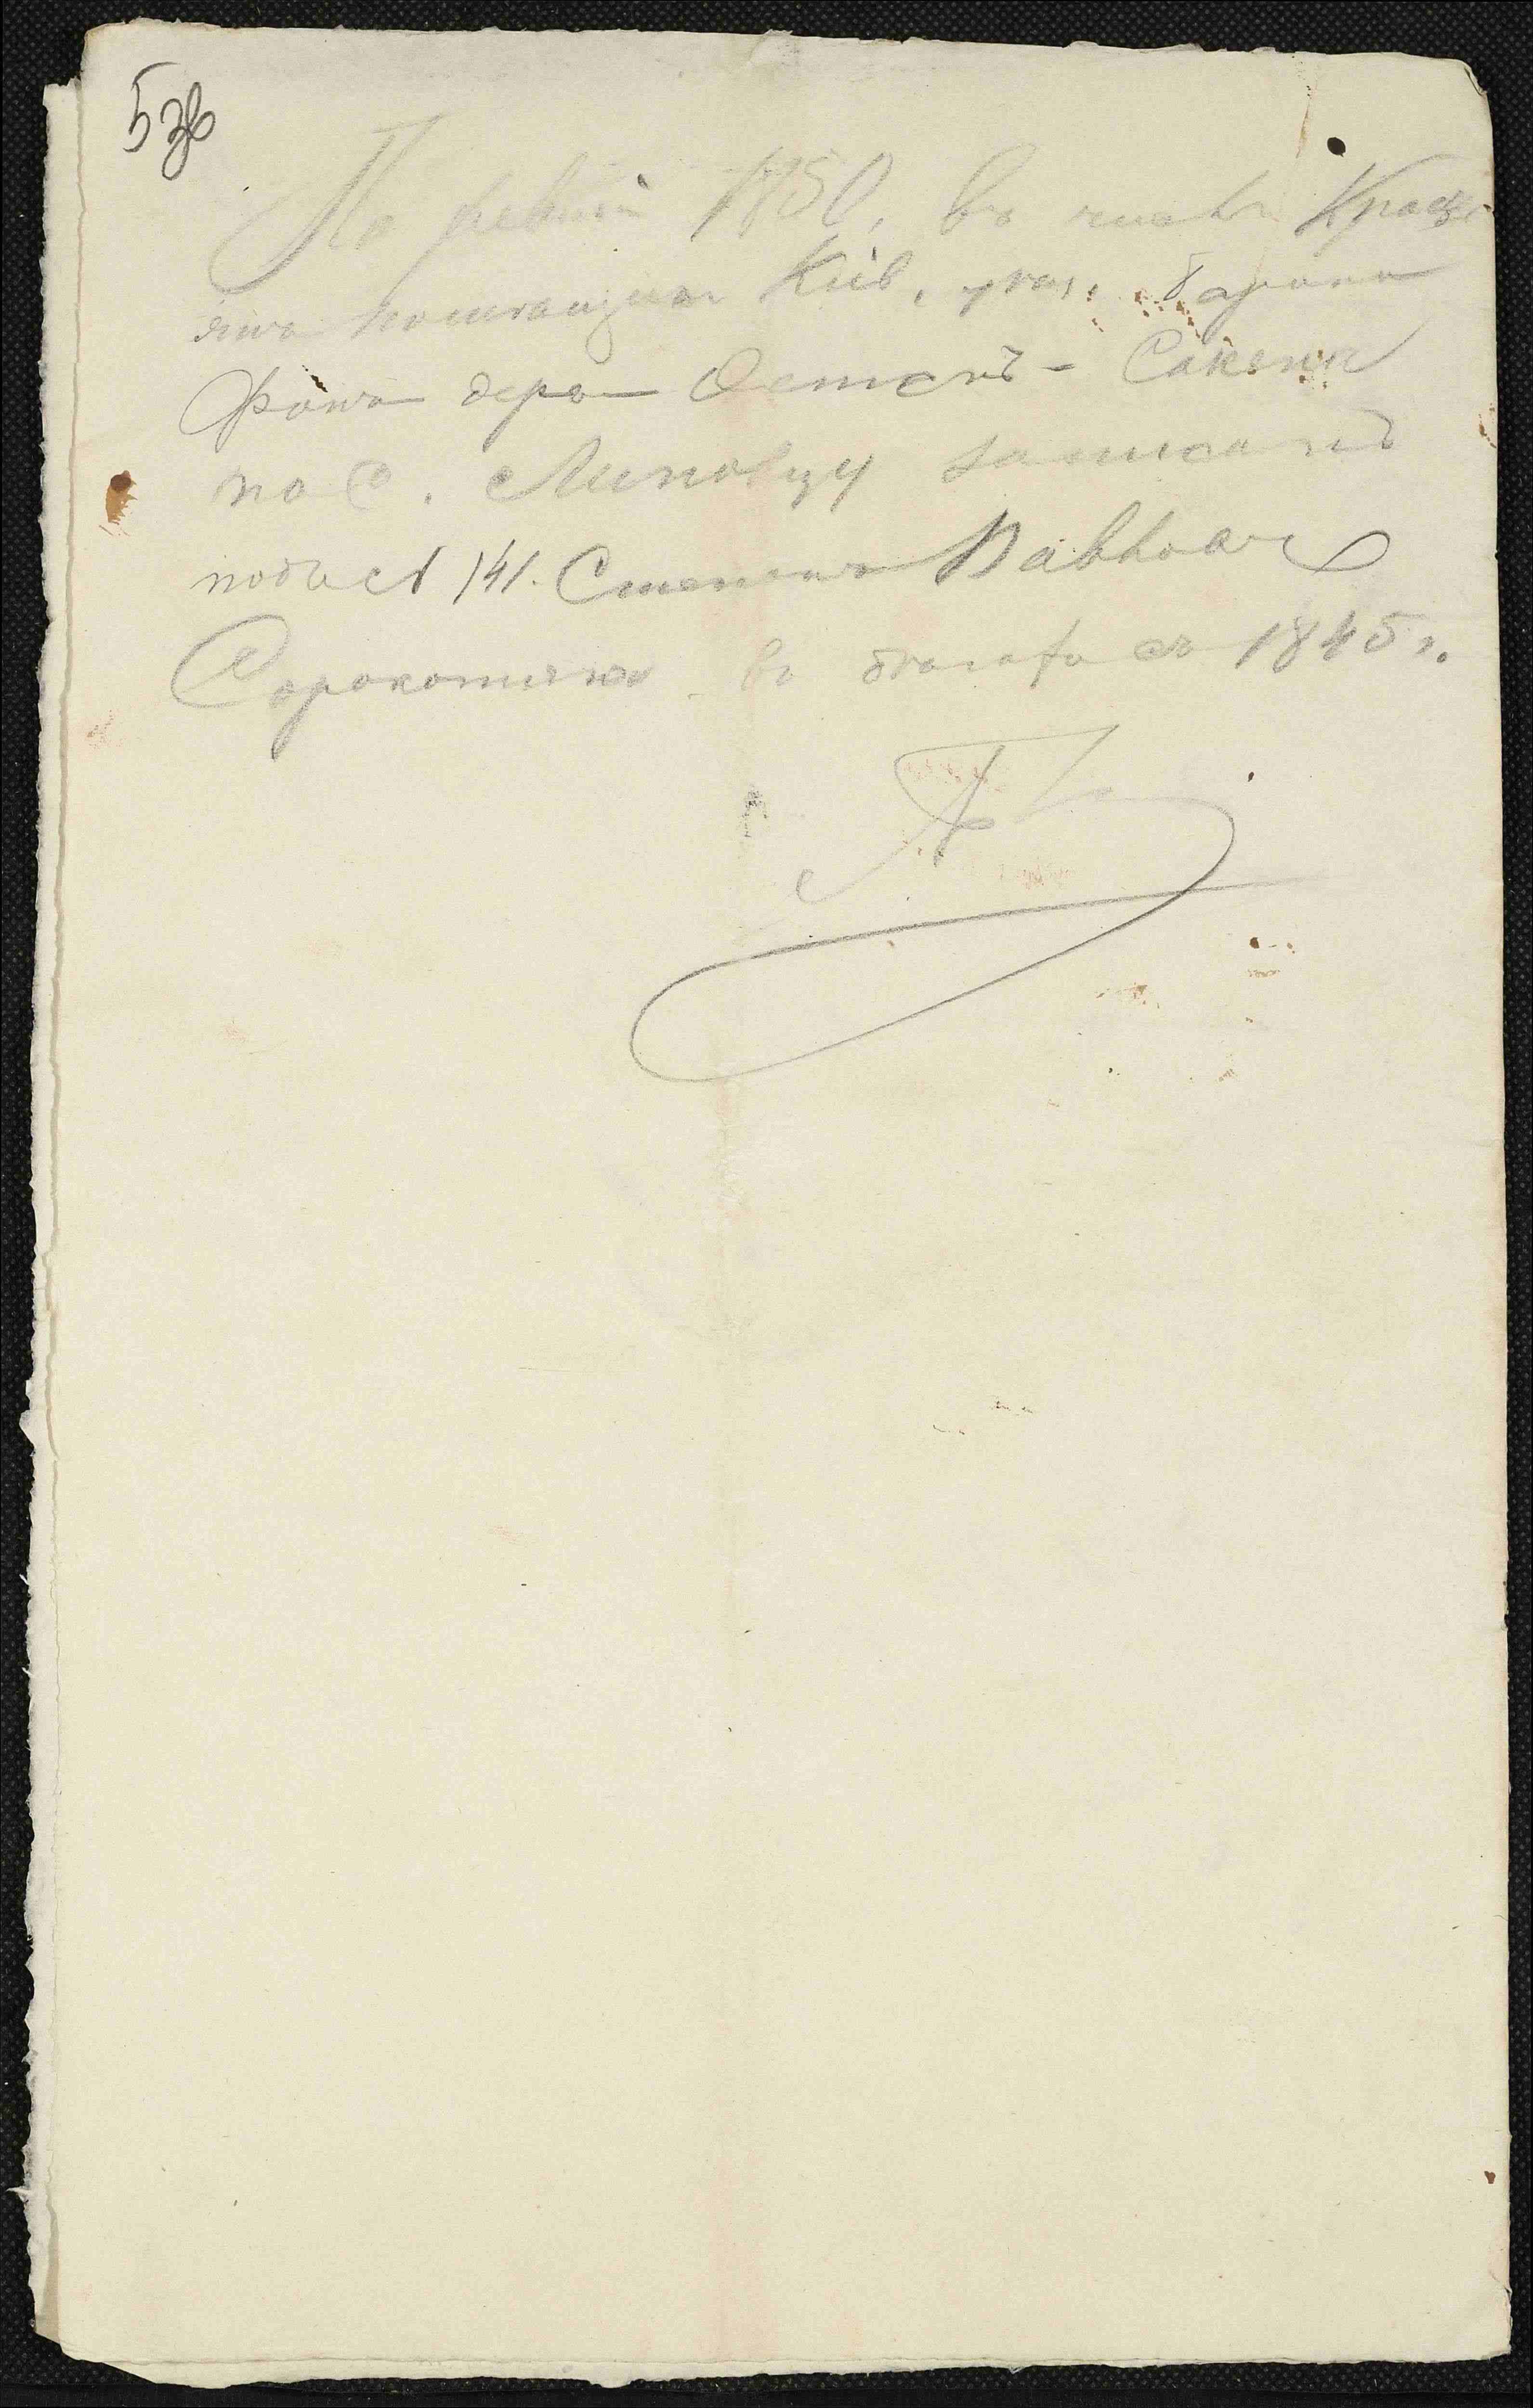 5 зв
По ревизіи 1850, въ числѣ Крестьянъ помѣщика Кіев. уѣз. барона
Фонъ деръ Остенъ-Сакена
по с. Липовцу записанъ
подъ № 141. Степанъ Павловъ
Сорокотяга въ бѣгахъ съ 1845 г.